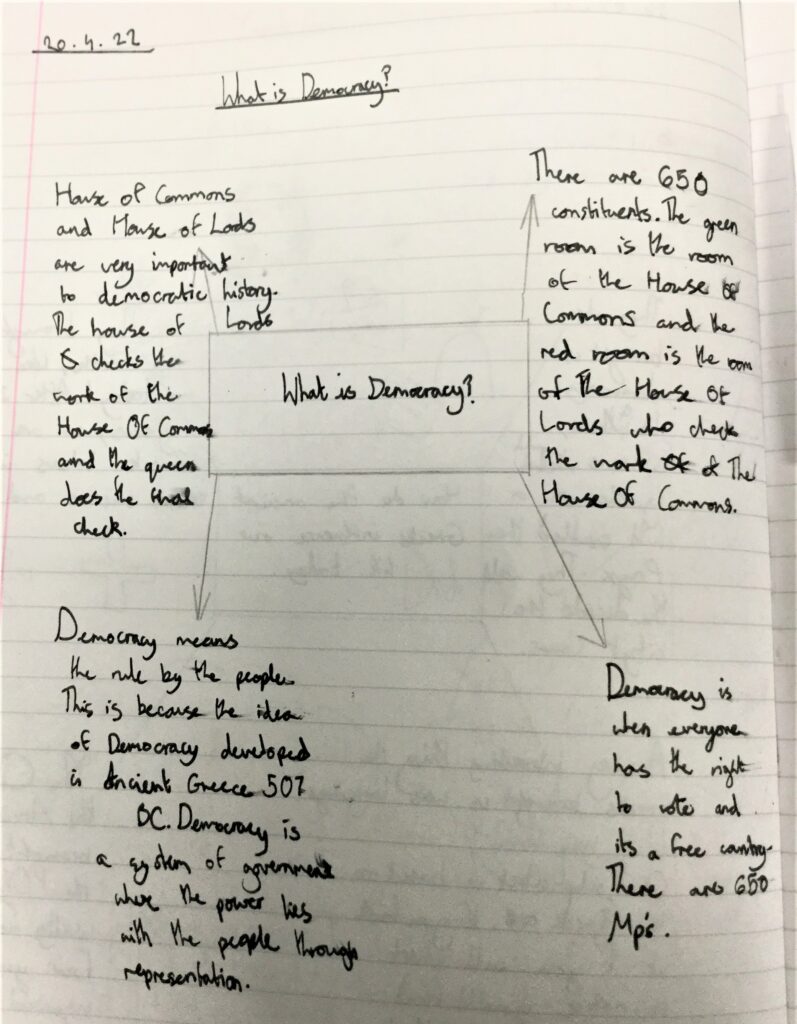 20.4.22
What is Democracy?
House of Commons
and House of Lords
are very important
to democratic history.
The house of Lords
checks the
work of the
House Of Commons
and the queen
does the final
check.
There are 650
constituents. The green
room is the room
of the House of
Commons and the
red room is the room
of The House Of
Lords who check
the work of The
House Of Commons.
What is Democracy?
Democracy means
the rule by the people.
This is because the idea
of Democracy developed
in Ancient Greece 507
BC. Democracy is
a system of government
where the power lies
with the people through
representation.
Democracy is
when everyone
has the right
to vote and
its a free country.
There are 650
Mp's.